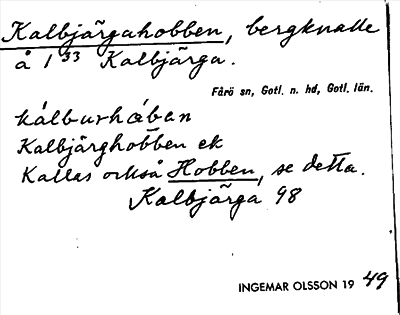 Kalbjärgahobben, bergknalle
å 1 33 Kalbjärga.
Fårö sn, Gotl. n. hd, Gotl. län.
kálburhɷ́ban
Kalbjärghobben ek
Kallas också Hobben, se detta.
Kalbjärga 98
INGEMAR OLSSON 19 49